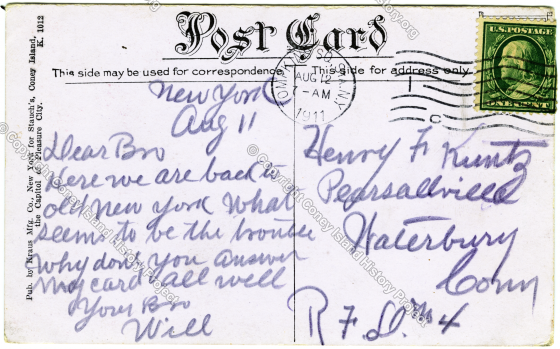 Post Card
This side may be used for correspondence.
This side for address only
Pub. by Kraus Mfg. Co. New York for Stauch's, Coney Island,
the Capitol of Pleasure City.
K. 1012
TOMPKINS SQ. STA. N.Y.
AUG 12
7-AM
1911
U.S. POSTAGE
ONE CENT
New York
Aug 11
Dear Bro
Here we are back in
old New York What
seems to be the trouble
why don't you answer
my card all well
Your Bro
Will
Henry F Kuntz
Pearsallville
Waterbury
Conn
R F D. No 4
© Copyright Coney Island History Project